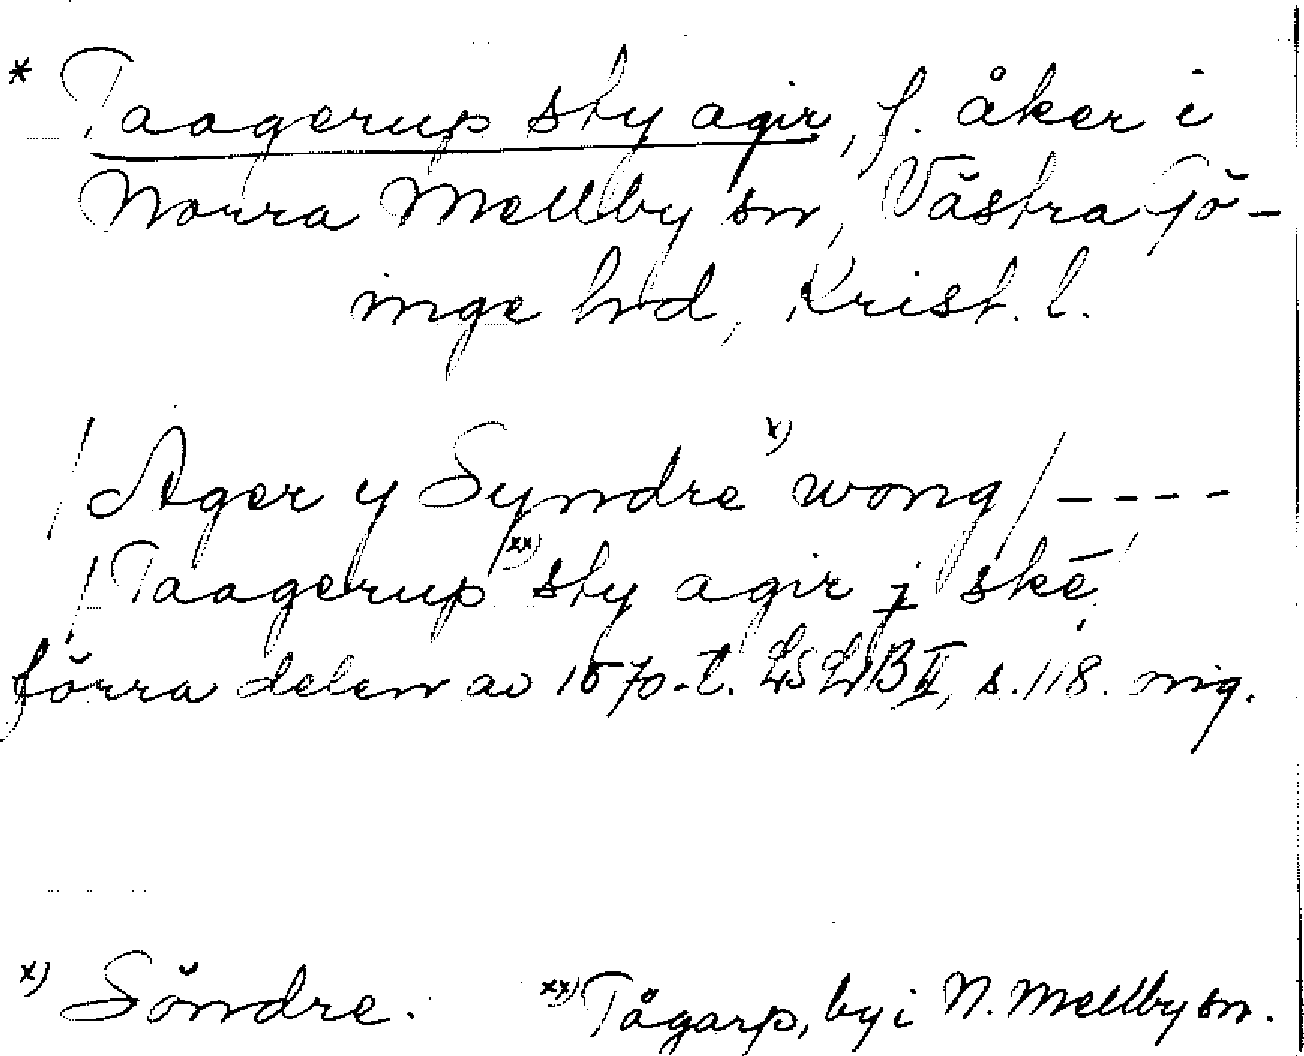 * Taagerup sty agir, f. åker i
Norra Mellby sn, Västra Gö-
inge hd, Krist. l.
/Ager y Syndre x) wong/ - - - -
/Taagerup xx) sty agir j skē/
förra delen av 1570-t. LSLB II, s. 118. mg.
x) Söndre. xx) Tågarp, by i N. Mellby sn.